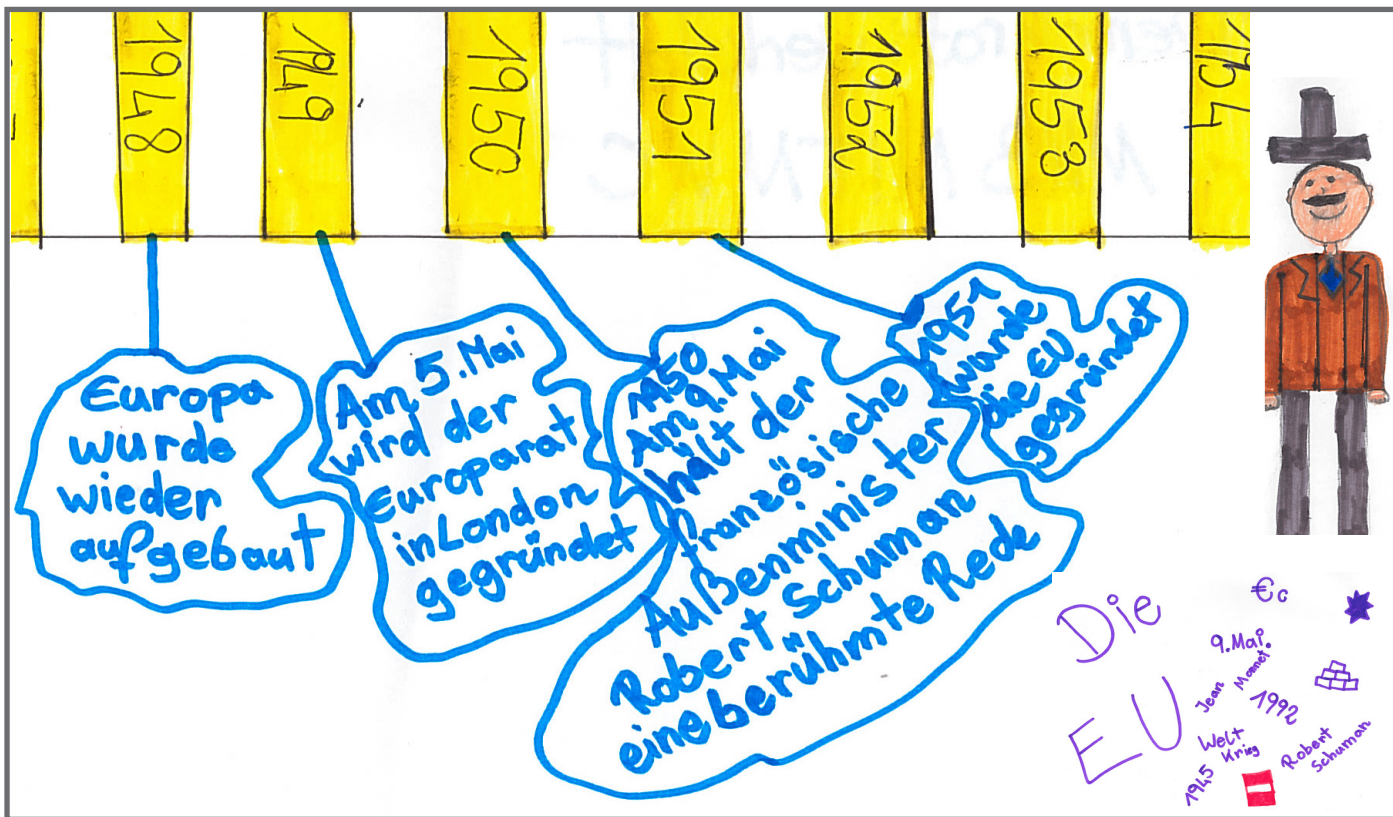 1948
1949
1950
1951
1952
1953
1954
Europa
wurde
wieder
aufgebaut
Am 5. Mai
wird der
Europarat
in London
gegründet
1950
Am 9. Mai
hält der
französische
Außenminister
Robert Schuman
eine berühmte Rede
1951
wurde
die EU
gegründet
Die
EU
€c
9. Mai.
Jean Monnet.
1992
Welt
Krieg
1945
Robert
Schuman